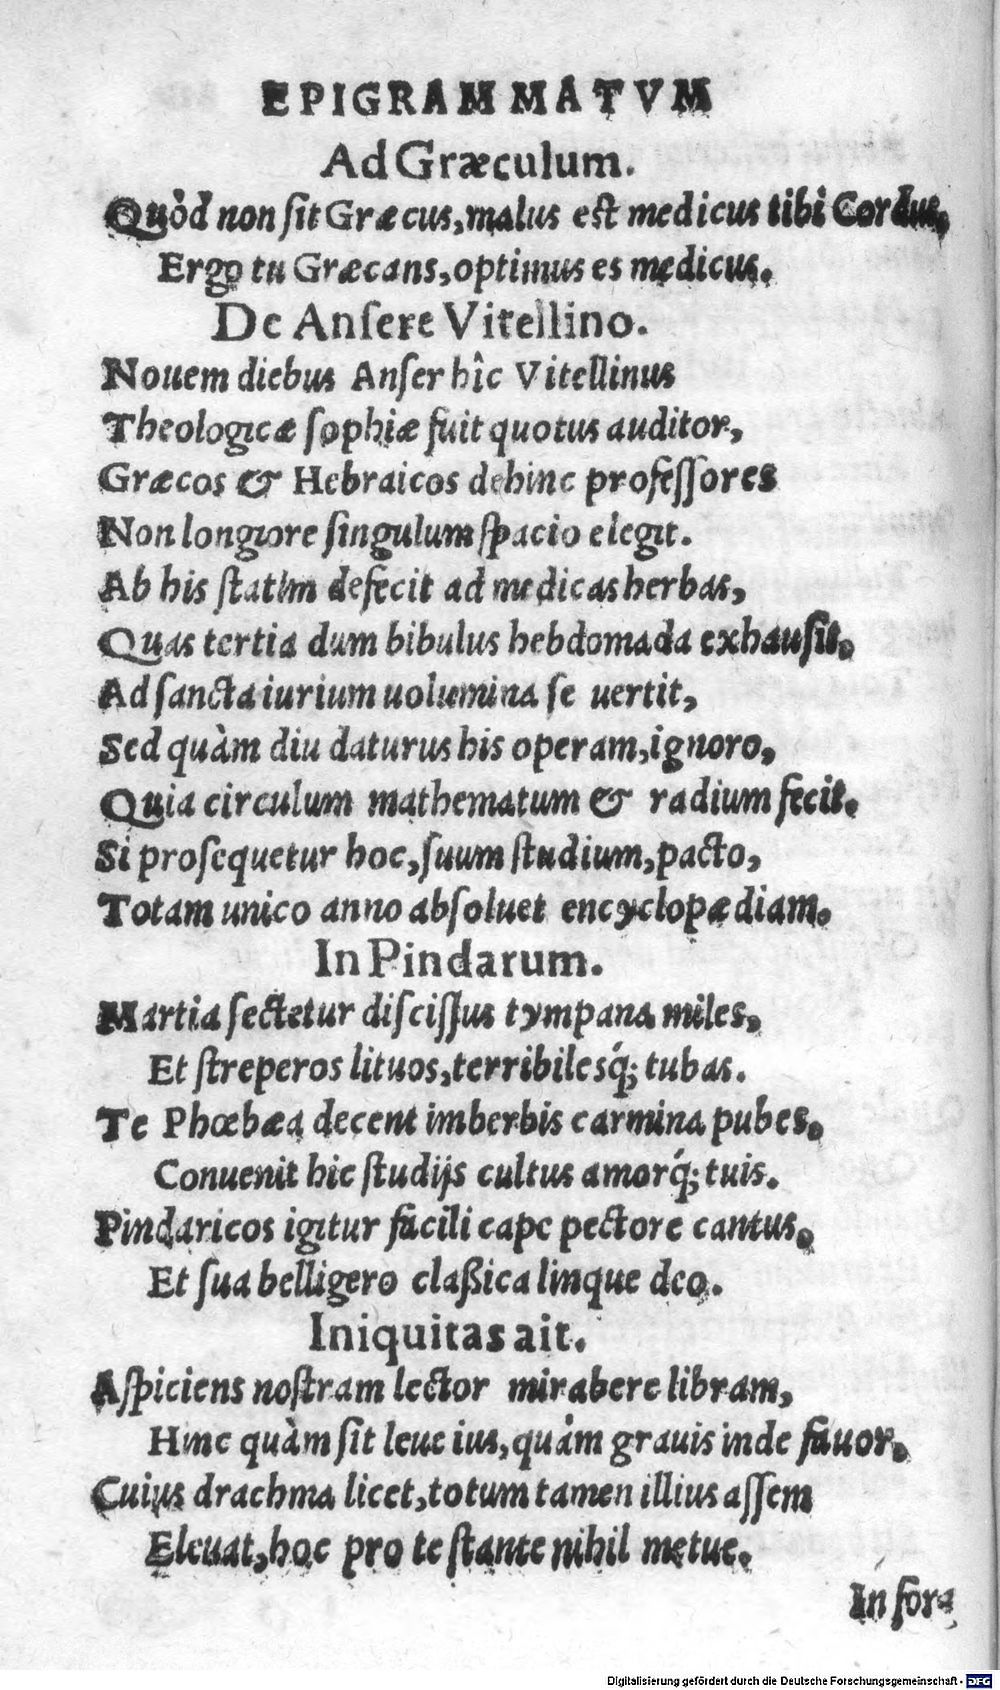 EPIGRAMMATVM
Ad Græculum.
Quòd non ſit Græcus, malus est medicus tibi Cordus,
Ergo tu Græcans, optimus es medicus.
De Anſere Vitellino.
Nouem diebus Anſer hîc Vitellinus
Theologicæ ſophiæ fuit quotus auditor,
Græcos & Hebraicos dehinc profeſſores
Non longiore ſingulum ſpacio elegit.
Ab his ſtatim defecit ad medicas herbas,
Quas tertia dum bibulus hebdomada exhauſit.
Ad ſancta iurium uolumina ſe uertit,
Sed quàm diu daturus his operam, ignoro,
Quia circulum mathematum & radium fecit.
Si proſequetur hoc, ſuum ſtudium, pacto,
Totam unico anno abſoluet encyclopædiam.
In Pindarum.
Martia ſectetur diſciſſus tympana miles,
Et ſtreperos lituos, terribilesq́; tubas.
Te Phœbæa decent imberbis carmina pubes,
Conuenit hic ſtudijs cultus amorq́; tuis.
Pindaricos igitur facili cape pectore cantus,
Et ſua belligero claßica linque deo.
Iniquitas ait.
Aſpiciens noſtram lector mirabere libram,
Hinc quàm ſit leue ius, quàm grauis inde fauor.
Cuius drachma licet, totum tamen illius aſſem
Eleuat, hoc pro te ſtante nihil metue.
In fora
Digitalisierung gefördert durch die Deutsche Forschungsgemeinschaft - DFG